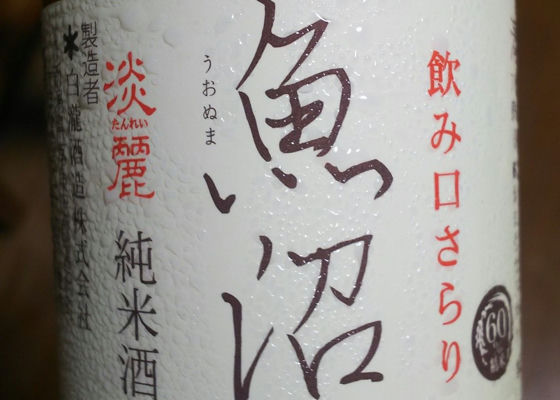 飲み口さらり
60
魚沼
うおぬま
淡麗
たんれい
純米酒
製造者
白瀧酒造株式会社